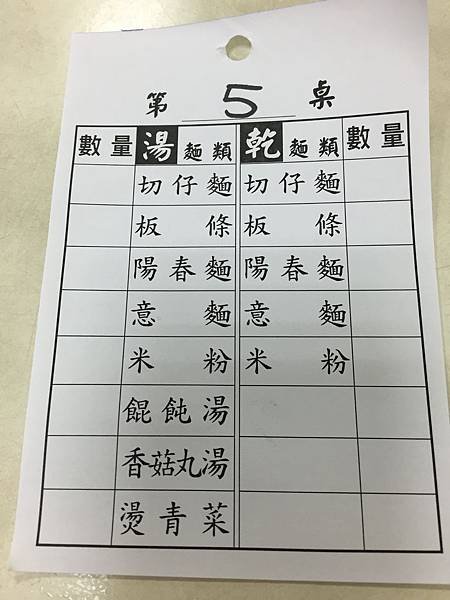 第 5 桌
數量 湯麵類 乾麵類 數量
切仔麵 切仔麵
板條 板條
陽春麵 陽春麵
意麵 意麵
米粉 米粉
餛飩湯
香菇丸湯
燙青菜